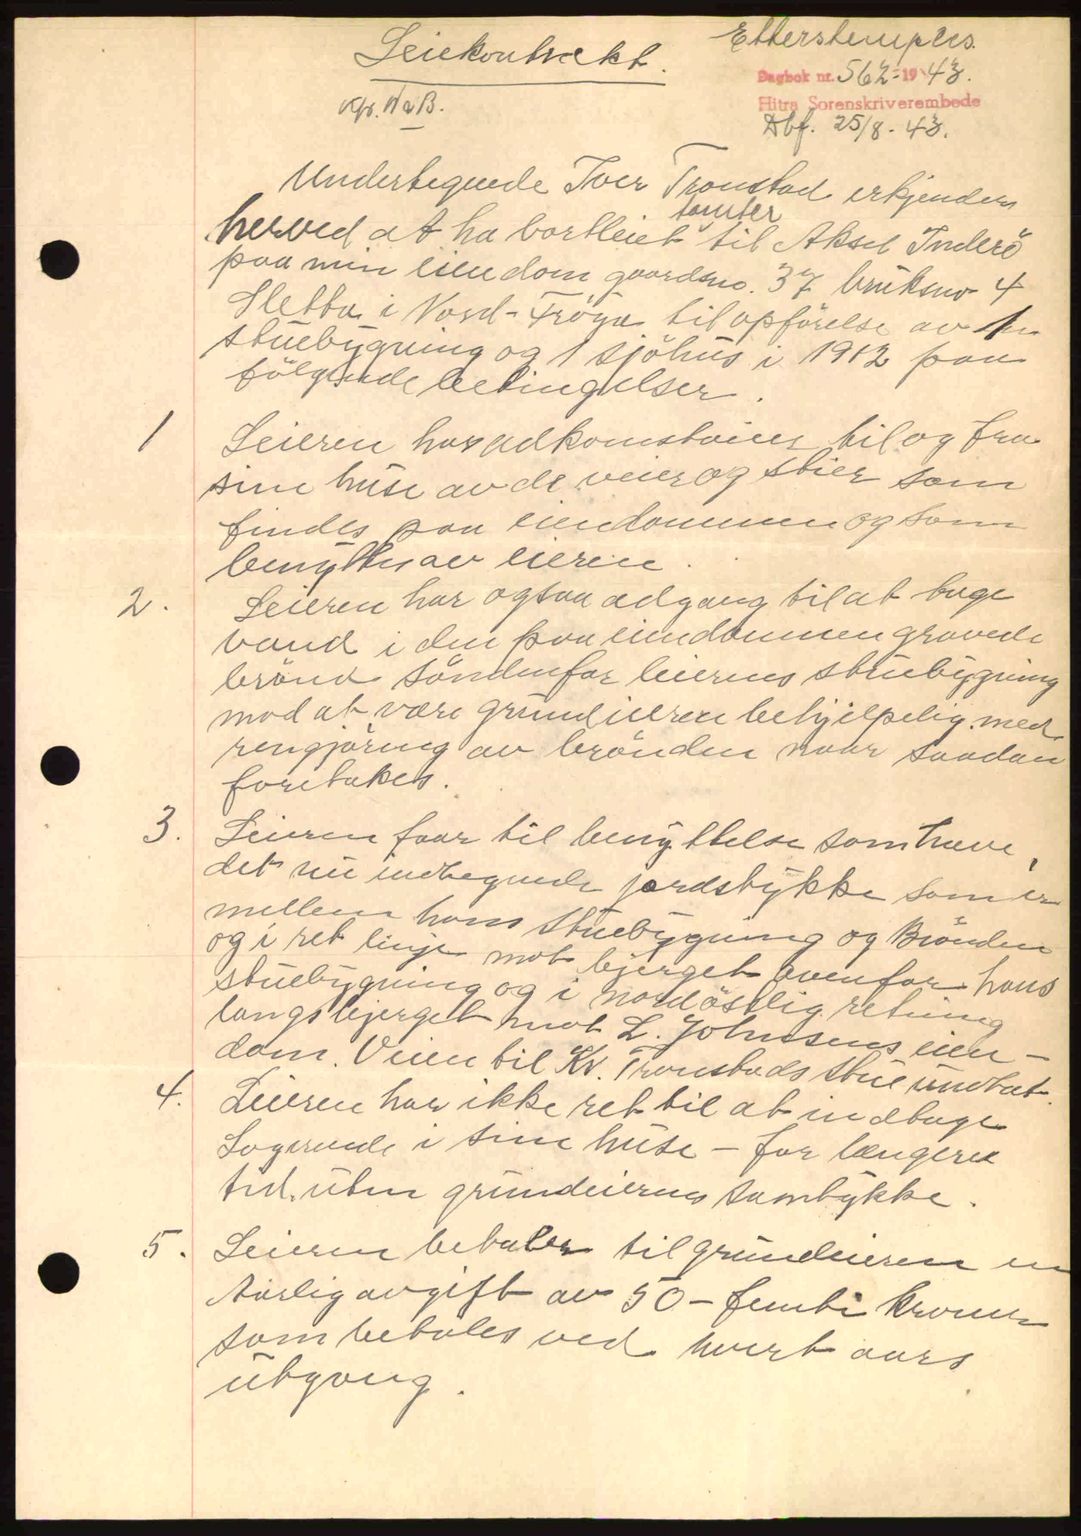 Leiekontrakt.
Etterstemples.
Dagbok nr. 562 - 1943.
Kpr. N a B.
Hitra Sorenskriverembede
Dbf. 25/8 - 43.
Undertegnede Iver Tronstad erkjender
tomter
herved at ha bortleiet til Aksel Inderö
paa min eiendom gaardsno. 37 bruksno 4
Sletta i Nord-Fröya til opförelse av 1en
stuebygning og 1 sjöhus i 1912 paa
fölgende betingelser.
1 Leieren har adkomstveier til og fra
sine huse av de veier og stier som
findes paa eiendommen og som
benyttes av eieren.
2. Leieren har ogsaa adgang til at tage
vand i den paa eiendommen gravede
brönd söndenfor leierens stuebygning
mod at være grundeieren behjelpelig med
rengjöring av brönden naar saadan
foretakes.
3. Leieren faar til benyttelse som have,
det nu indtegnede jordstykke som er
mellem hans stuebygning og Brönden
og i ret linje mot bjerget ovenfor hans
stuebygning og i nordöstlig retning
langs bjerget mot L. Johnsens eien-
dom. Veien til Kr. Tronstads stue undtat.
4. Leieren har ikke ret til at indtage
Logerende i sine huse - for længere
tid. uten grundeierens samtykke.
5. Leieren betaler til grundeieren en
Aarlig avgift av 50 - femti kroner
som betales ved hvert aars
utgang.